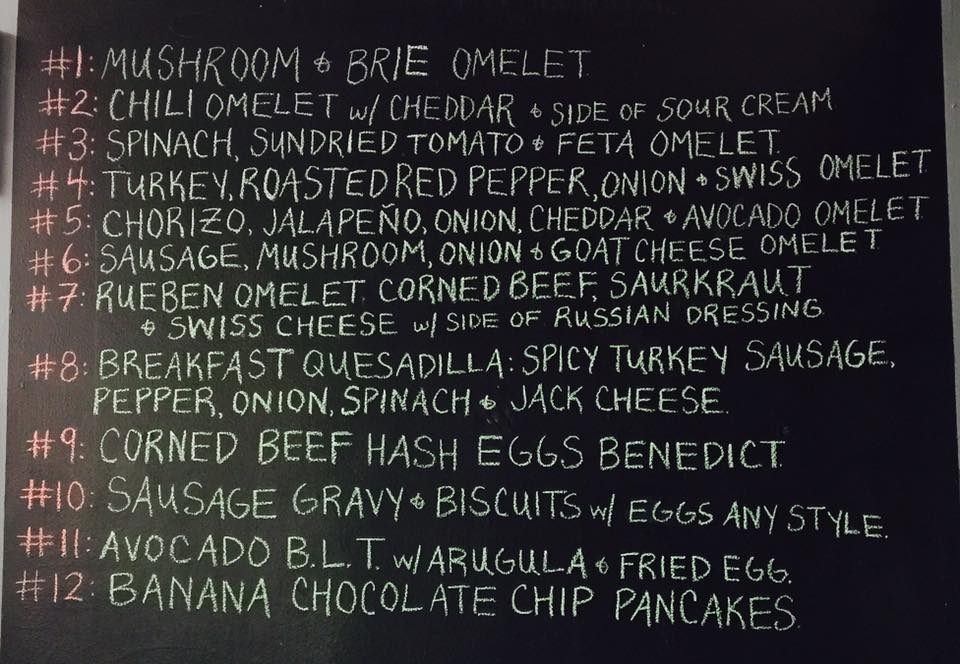 #1: MUSHROOM & BRIE OMELET
#2: CHILI OMELET w/ CHEDDAR & SIDE OF SOUR CREAM
#3: SPINACH, SUNDRIED TOMATO & FETA OMELET.
#4: TURKEY, ROASTED RED PEPPER, ONION & SWISS OMELET
#5: CHORIZO, JALAPEÑO, ONION, CHEDDAR & AVOCADO OMELET
#6: SAUSAGE, MUSHROOM, ONION & GOAT CHEESE OMELET
#7: RUEBEN OMELET. CORNED BEEF, SAURKRAUT
& SWISS CHEESE w/ SIDE OF RUSSIAN DRESSING.
#8: BREAKFAST QUESADILLA: SPICY TURKEY SAUSAGE,
PEPPER, ONION, SPINACH & JACK CHEESE.
#9: CORNED BEEF HASH EGGS BENEDICT.
#10: SAUSAGE GRAVY & BISCUITS w/ EGGS ANY STYLE.
#11: AVOCADO B.L.T. w/ ARUGULA & FRIED EGG.
#12: BANANA CHOCOLATE CHIP PANCAKES.